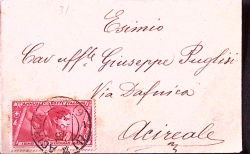 31
Esimio
Cav uff.le Giuseppe Puglisi
Via Dafnica
Acireale